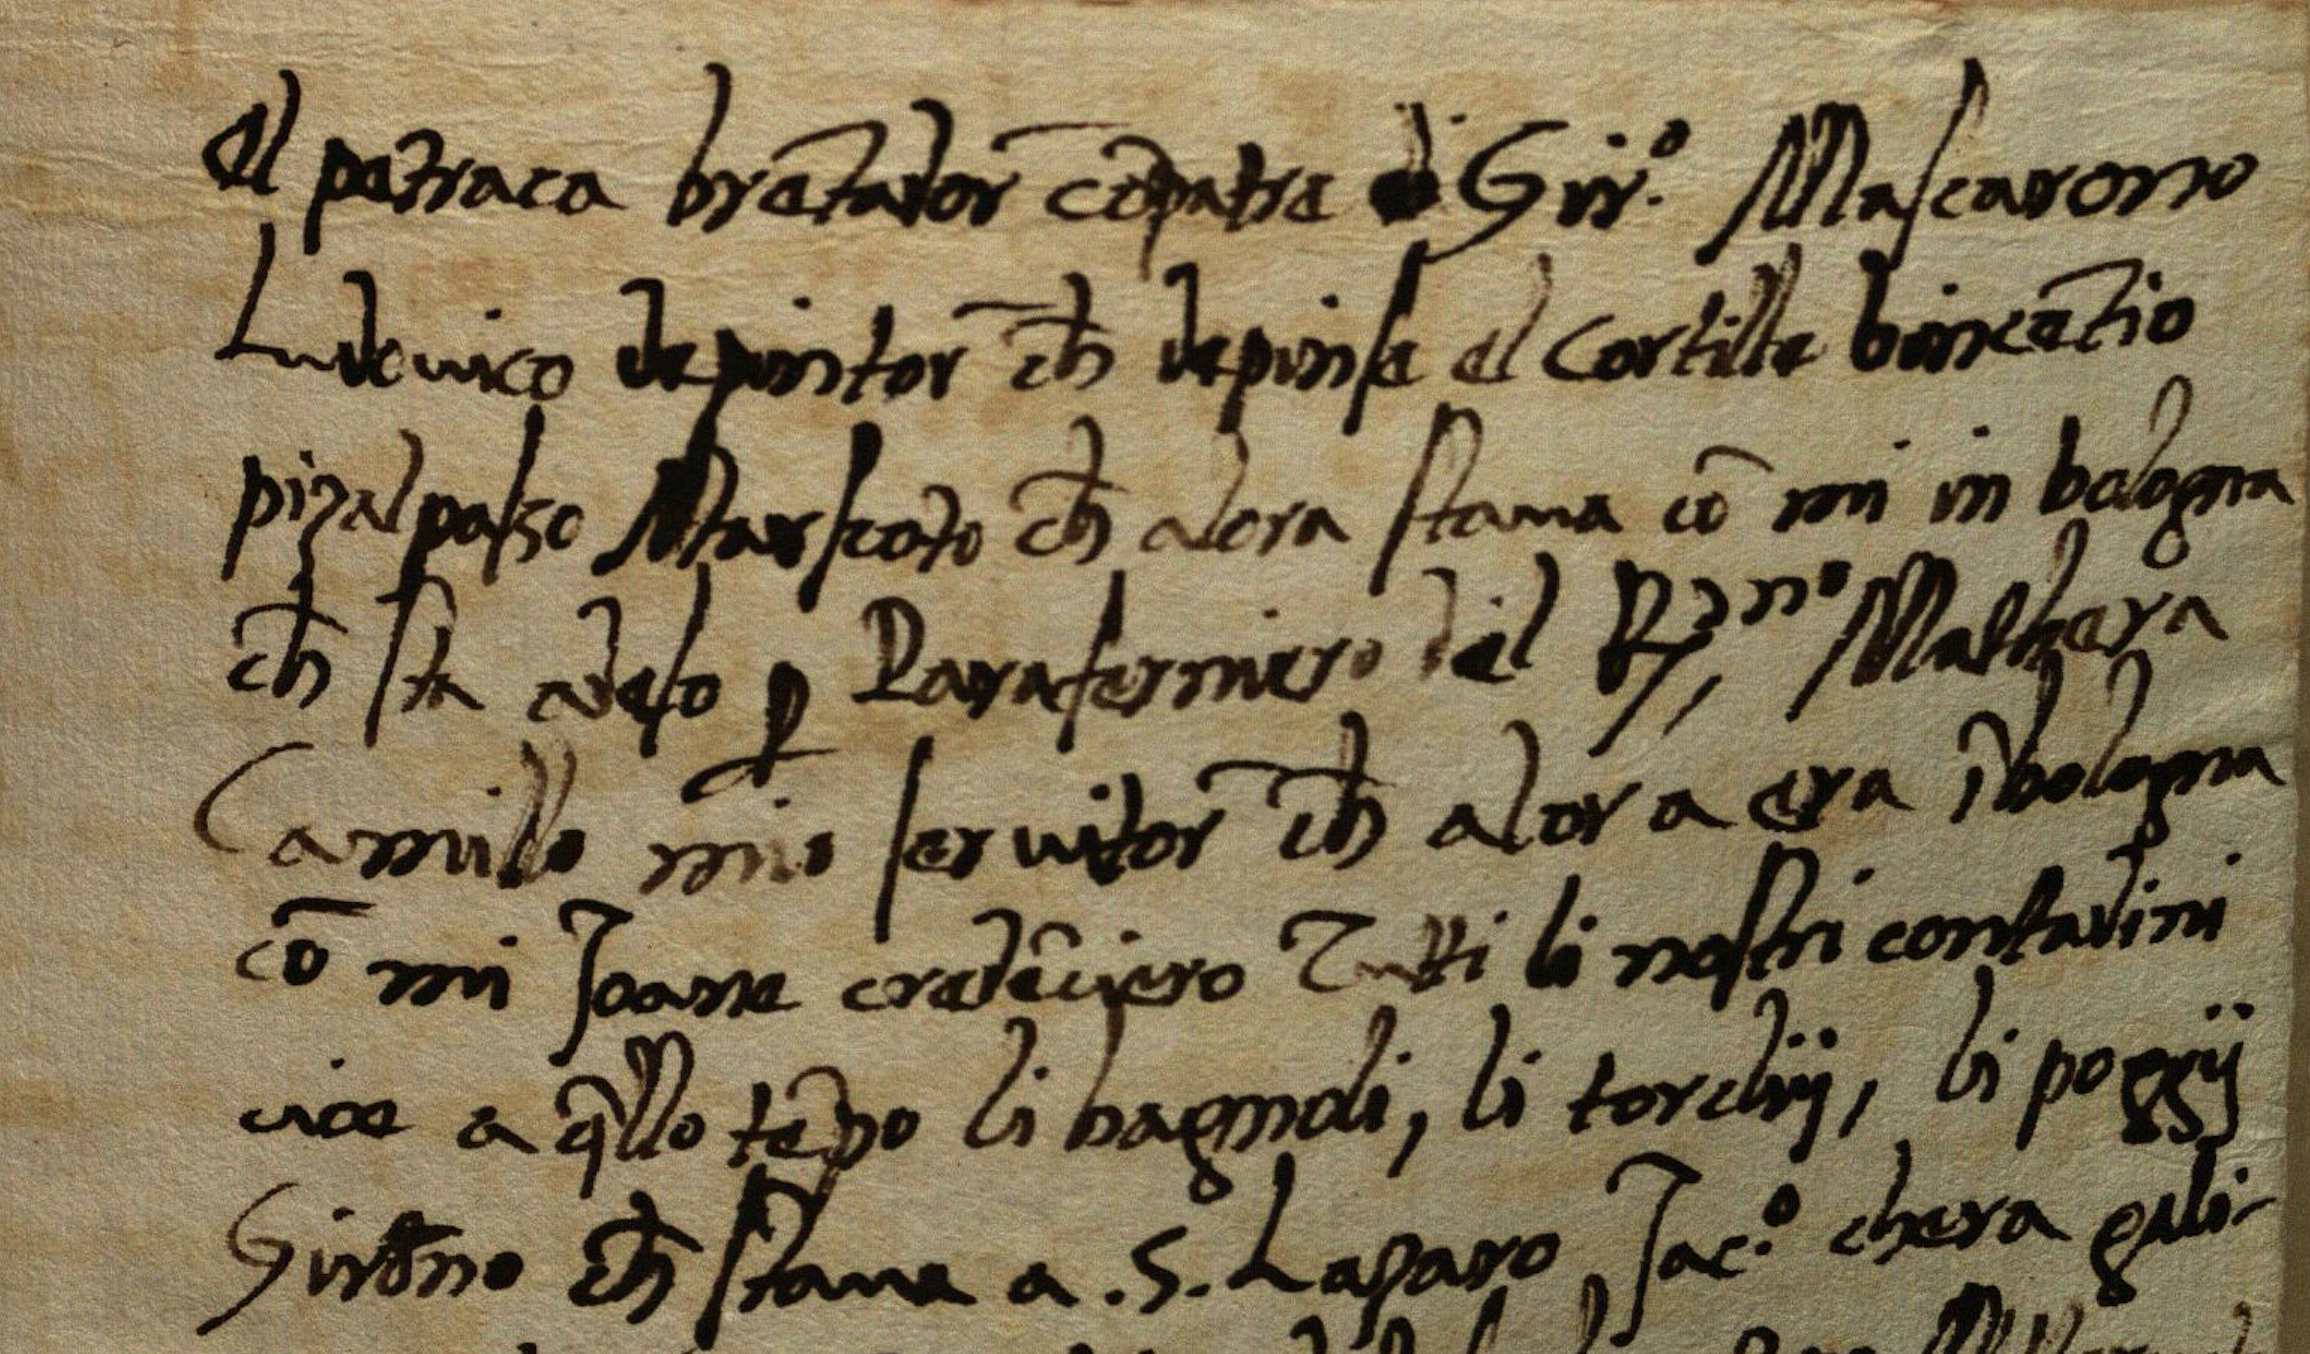 El petraca bretador cōpatre di Gir.º Mascarono
Ludovico depintor ch̄ depinse el Cortille vincētio
pizalpasso Marscoto ch̄ alora stava cō mi in bologna
ch̄ sta adesso ꝑ Parafermiero del R.mo Malvera
Camillo mio servitor ch̄ alora era ī bologna
cō mi Joane credēciero Tutti li nostri contadini
cioe a q̄llo tēpo li bagnoli, li torchij, li poggij
Girōno ch̄ stava a .S. Lazaro Jac.º chera gali-